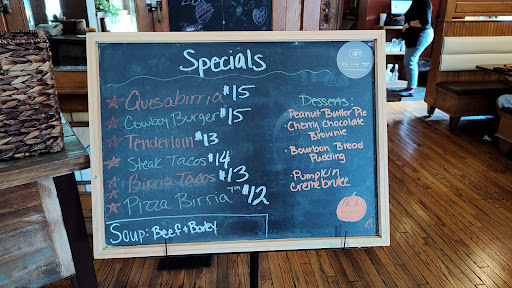 Specials
Quesabirria $15
Cowboy Burger $15
Tenderloin $13
Steak Tacos $14
Birria Tacos $13
Pizza Birria 7in $12
Soup: Beef + Barley
Desserts:
Peanut Butter Pie
• Cherry Chocolate
Brownie
• Bourbon Bread
Pudding
• Pumpkin
Cremebrulee